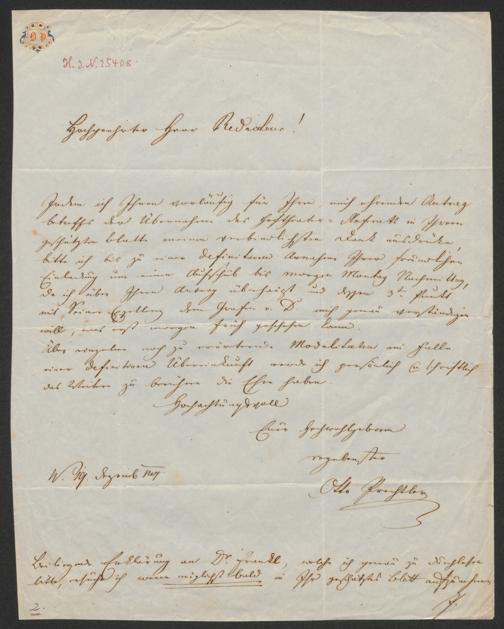 O P
H. I. N. 25408
Hochgeehrter Herr Redacteur!
Indem ich Ihnen vorläufig für Ihren, mich ehrenden Antrag
betreffs der Übernahme des Hoftheater-Referats in Ihrem
geschätzten Blatte meinen verbindlichsten Dank ausdrücke,
bitte ich bis zu einer definitiven Annahme Ihrer freundlichen
Einladung um einen Aufschub bis morgen Montag Nachmittag,
da ich über Ihren Antrag überhaupt und dessen 3t. Punkt
mit Seiner Exzellenz dem Grafen v. D mich genau verständigen
will, was erst morgen früh geschehen kann.
Über einzelne noch zu erörternde Modalitäten im Falle
einer definitiven Übereinkunft werde ich persönlich o. schriftlich
das Weitere zu berichten die Ehre haben.
Hochachtungsvoll
Euer Hochwohlgeboren
ergebenster
Otto Prechtler
W. 19. Dezemb
Beiliegende Erklärung an Dr. Frankl, welche ich genau zu durchlesen
bitte, ersuche ich wenn möglichst bald in Ihr geschätztes Blatt aufzunehmen.
2.